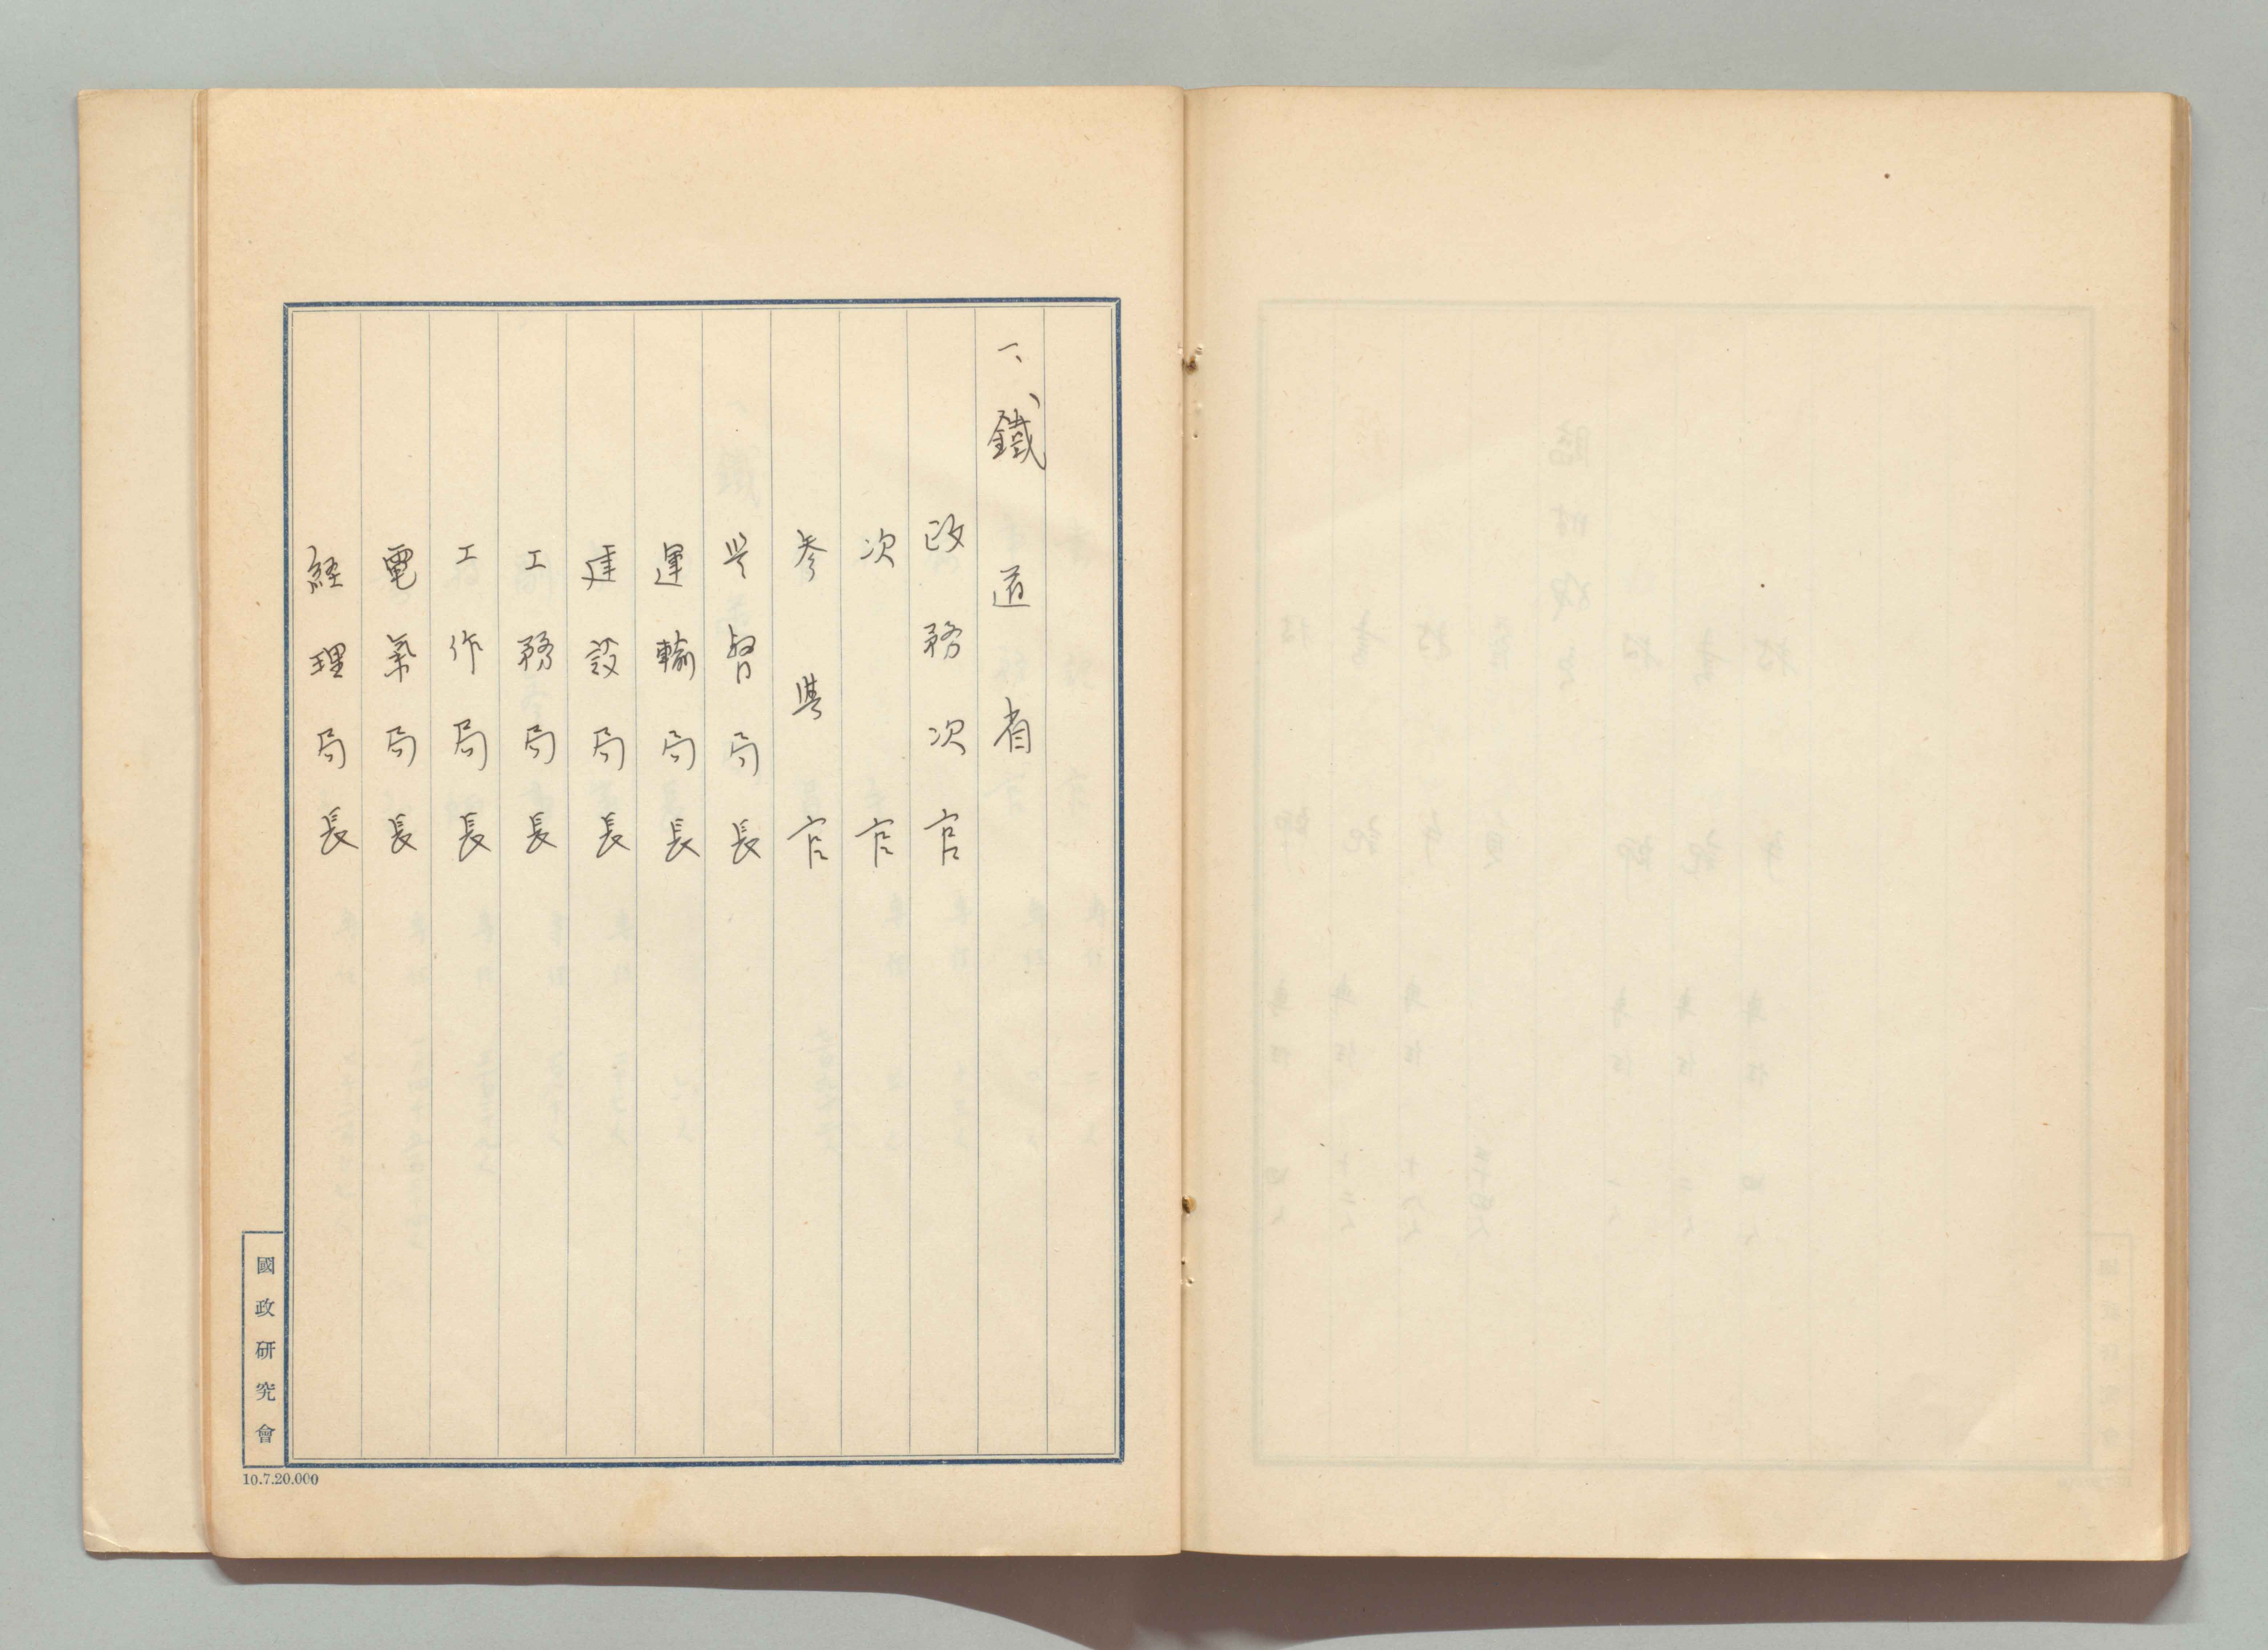 一、鐵道省
政務次官
次官
参與官
監督局長
運輸局長
建設局長
工務局長
工作局長
電氣局長
経理局長
國政研究會
10.7.20.000